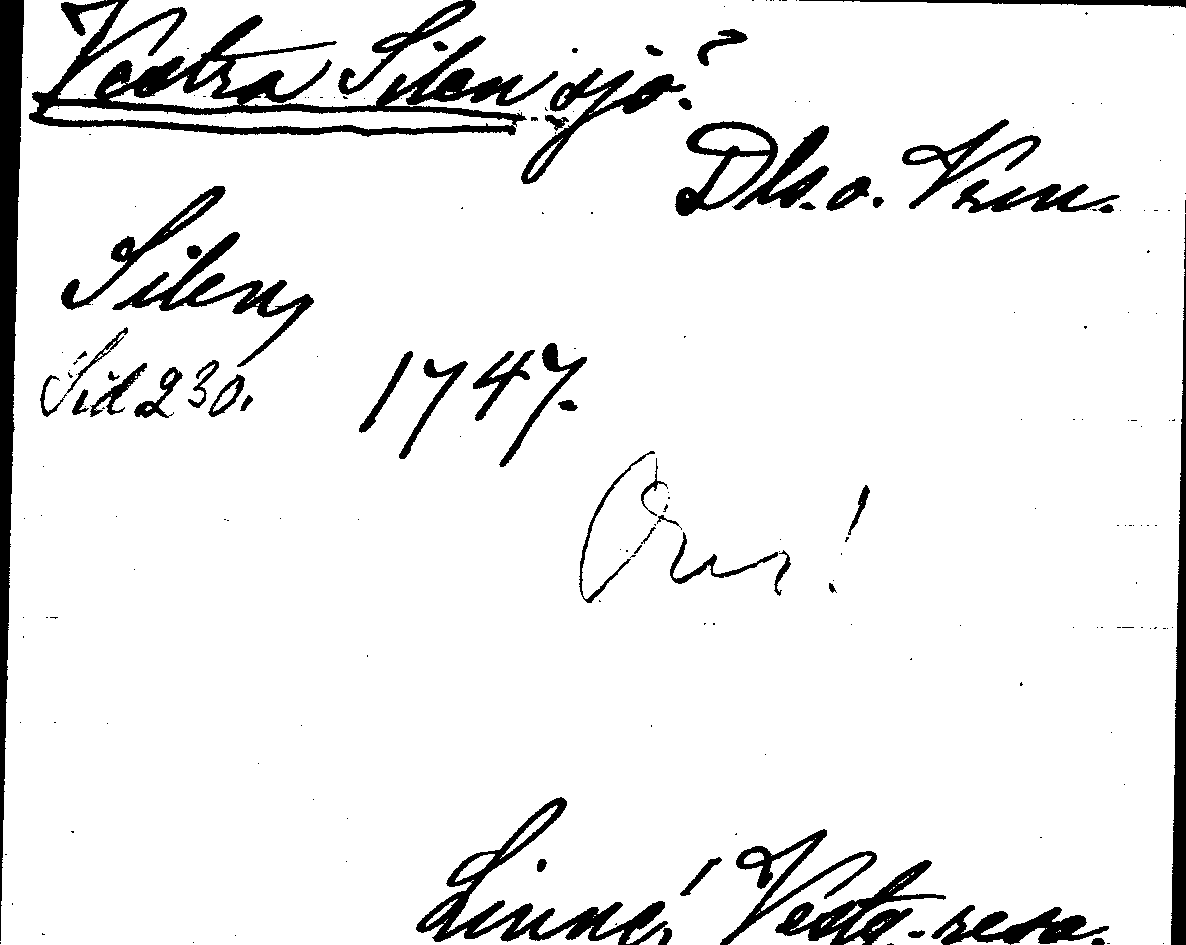 Västra Silen sjö?
Dls. o. Vrm.
Silen,
Sid 230. 1747.
Linné, Västg.-resa.